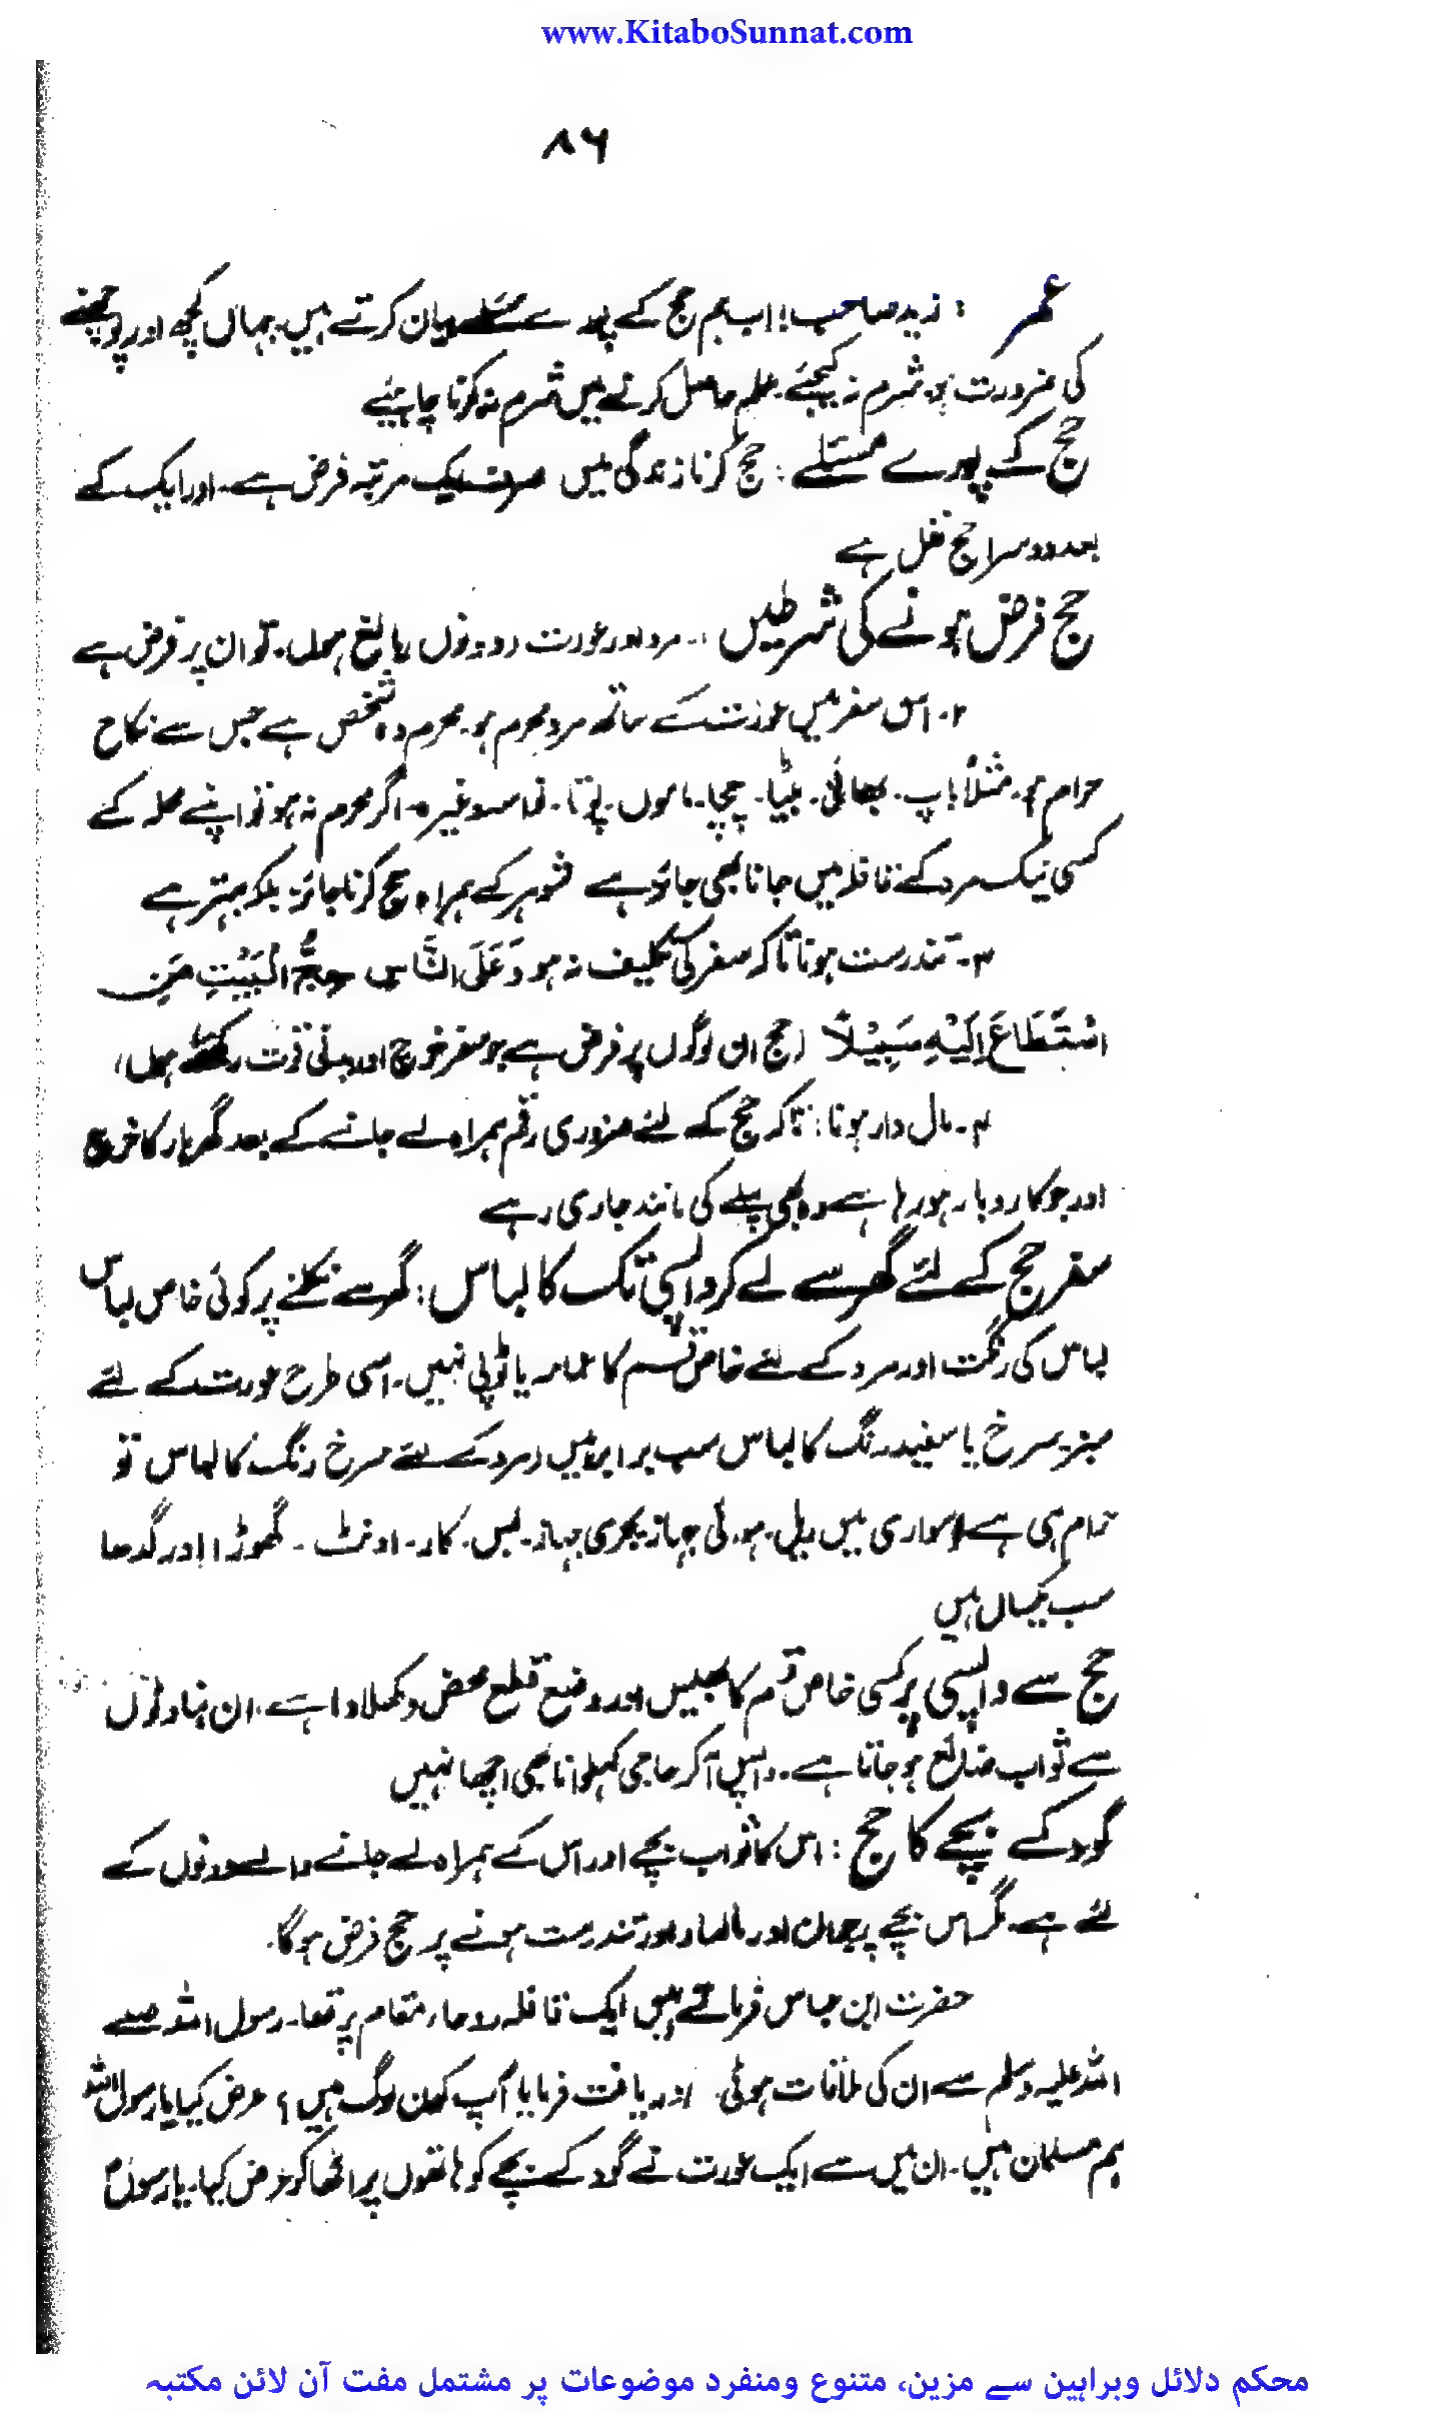 www.KitaboSunnat.com
۸۶
عمر : زید صاحب! اب ہم حج کے پورے مسئلے بیان کرتے ہیں۔ جہاں کچھ اور پوچھنے
کی ضرورت ہو۔ شرم نہ کیجئے۔ علم حاصل کرنے میں شرم نہ کرنا چاہئیے
حج کے پورے مسئلے : حج کرنا زندگی میں صرف ایک مرتبہ فرض ہے۔ اور ایک کے
بعد دوسرا حج نفل ہے
حج فرض ہونے کی شرطیں ۱۔ مرد اور عورت دونوں بالغ ہوں۔ تو ان پر فرض ہے
۲۔ اس سفر میں عورت کے ساتھ مرد محرم ہو۔ محرم وہ شخص ہے جس سے نکاح
حرام ہو۔ مثلاً باپ۔ بھائی۔ بیٹا۔ چچا۔ ماموں۔ پوتا۔ نواسہ وغیرہ۔ اگر محرم نہ ہو تو اپنے محلہ کے
کسی نیک مرد کے قافلہ میں جانا بھی جائز ہے شوہر کے ہمراہ حج کرنا جائز بلکہ بہتر ہے
۳۔ تندرست ہونا تاکہ سفر کی تکلیف نہ ہو وَعَلَی النَّاسِ حِجُّ الْبَیْتِ مَنِ
اسْتَطَاعَ اِلَیْهِ سَبِیْلًا (حج ان لوگوں پر فرض ہے جو سفر خرچ اور بدنی قوت رکھتے ہوں)
۴۔ مال دار ہونا : تاکہ حج کے لئے ضروری رقم ہمراہ لے جانے کے بعد گھر بار کا خرچ
اور جو کاروبار ہو رہا ہے وہ بھی پہلے کی مانند جاری رہے
سفر حج کے لئے گھر سے لے کر واپسی تک کا لباس : گھر سے نکلنے پر کوئی خاص لباس
لباس کی رنگت اور مرد کے لئے خاص قسم کا عمامہ یا ٹوپی نہیں۔ اسی طرح عورت کے لئے
سبز۔ سرخ یا سفید رنگ کا لباس سب برابر ہیں (مرد کے لئے سرخ رنگ کا لباس تو
حرام ہی ہے) سواری میں ریل۔ ہوائی جہاز۔ بحری جہاز۔ بس۔ کار۔ اونٹ ۔ گھوڑا اور گدھا
سب یکساں ہیں
حج سے واپسی پر کسی خاص قسم کا بھیس اور وضع قطع محض دکھلاوا ہے۔ ان بناوٹوں
سے ثواب ضائع ہو جاتا ہے۔ واپس آکر حاجی کہلوانا بھی اچھا نہیں
گود کے بچے کا حج : اس کا ثواب بچے اور اس کے ہمراہ لے جانے والے دونوں کے
لئے ہے۔ مگر اس بچے پر جوان اور مالدار اور تندرست ہونے پر حج فرض ہوگا۔
حضرت ابن عباس فرماتے ہیں ایک قافلہ روحاء مقام پر تھا۔ رسول اللہ صلے
اللہ علیہ وسلم سے ان کی ملاقات ہوئی۔ دریافت فرمایا آپ کون لوگ ہیں؟ عرض کیا یا رسول اللہ
ہم مسلمان ہیں۔ ان میں سے ایک عورت نے گود کے بچے کو ہاتھوں پر اٹھا کر عرض کیا۔ یا رسولؐ
محکم دلائل وبراہین سے مزین، متنوع ومنفرد موضوعات پر مشتمل مفت آن لائن مکتبہ